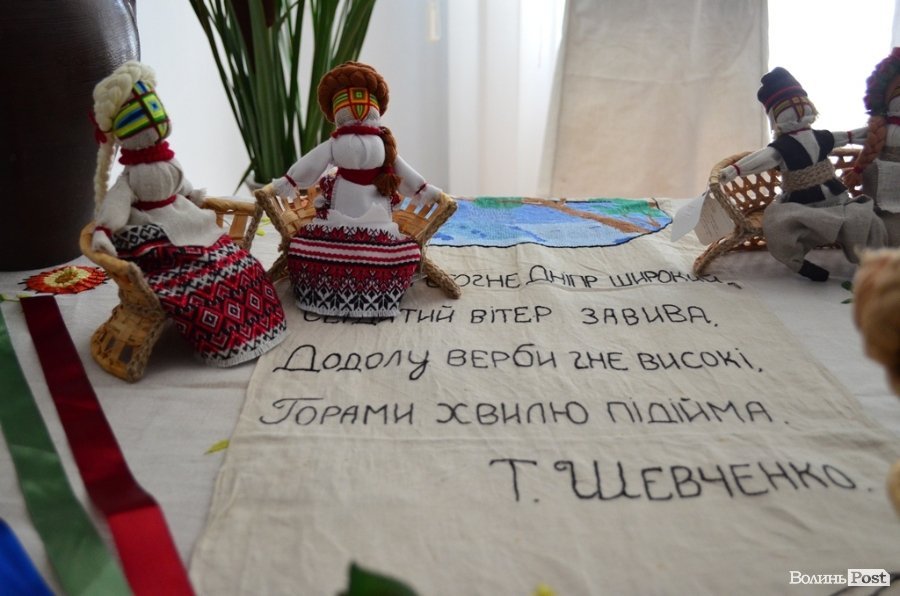 Дніпр широкий,
вітер завива.
Додолу верби гне високі,
Горами хвилю підійма.
Т. Шевченко.
Волинь Post